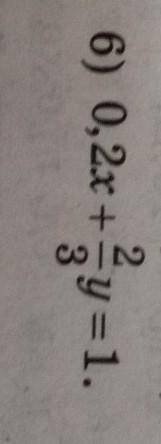 6) 0,2x + 2/3 y = 1.